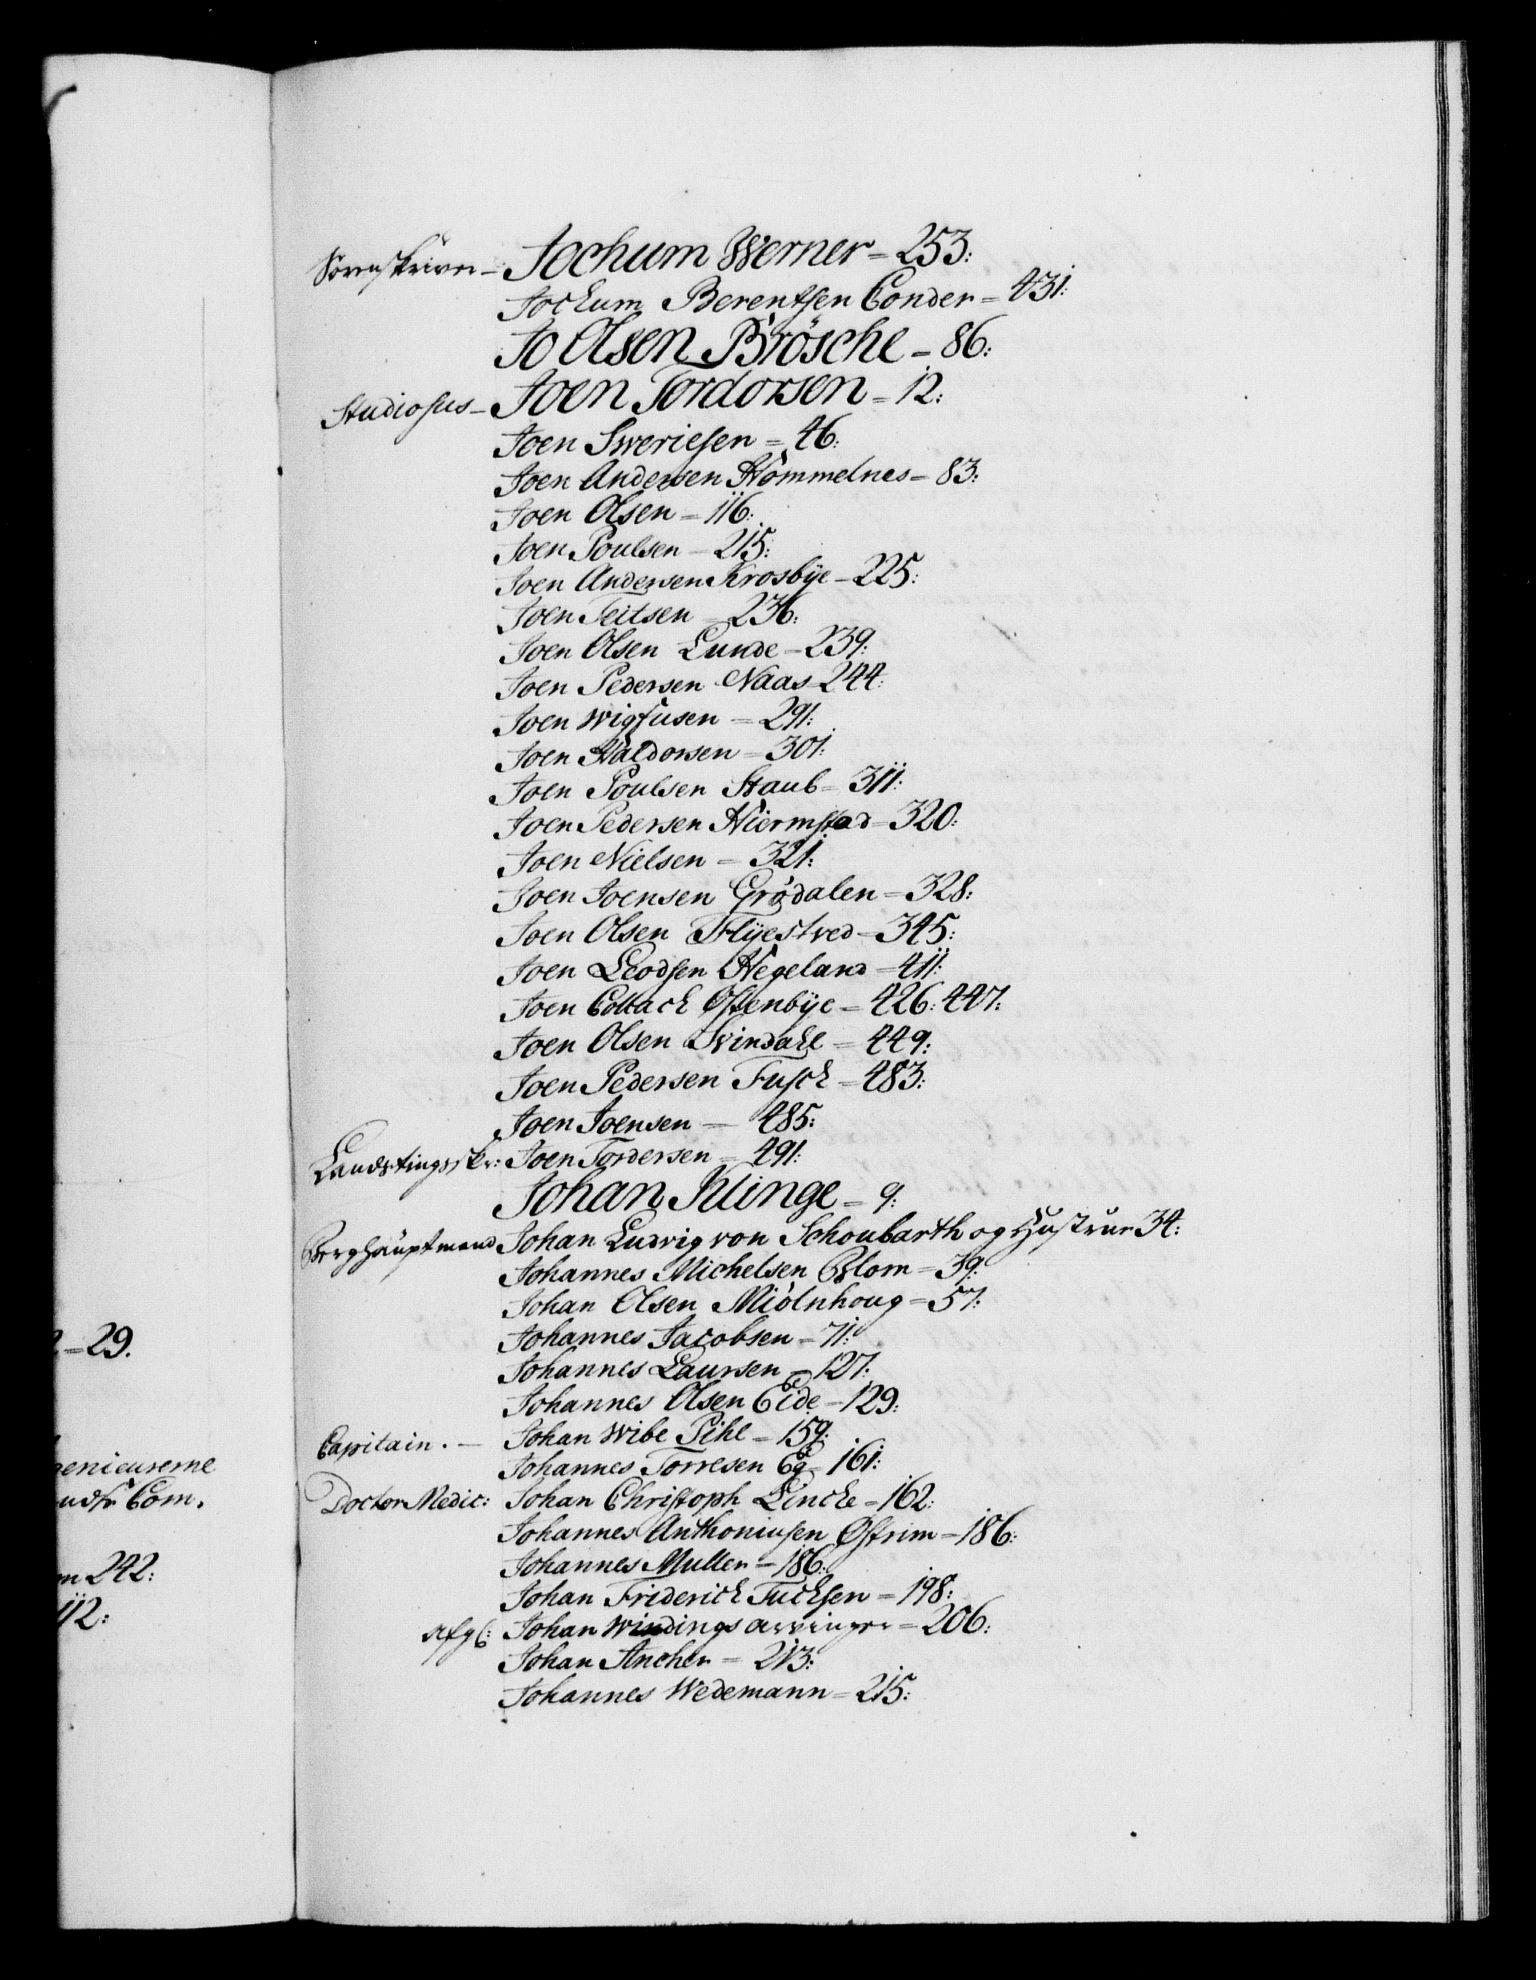 Sorenskriver – Jochum Werner = 253:
Jochum Berentsen Conder = 431:
Jo Olsen Brösche = 86:
Studiosus – Joen Tordorsen = 12:
Joen Sweriesen = 46:
Joen Andersen Hömmelnes = 83:
Joen Olsen = 116:
Joen Poulsen = 215:
Joen Andersen Krosbÿe = 225:
Joen Teitsen = 236:
Joen Olsen Lunde = 239:
Joen Pedersen Naas = 244:
Joen Wigfusen = 291:
Joen Haldorsen = 301:
Joen Poulsen Staub = 311:
Joen Pedersen Hiermstad = 320:
Joen Nielsen = 321:
Joen Joensen Grödalen = 328:
Joen Olsen Flÿestved = 345:
Joen Leodsen Hegeland = 411:
Joen Collach Ostenbÿe = 426: 447:
Joen Olsen Svindahl = 449:
Joen Pedersen Fusch = 483:
Joen Joensen = 485:
Landstingsskr: Joen Tordersen = 491:
Johan Klinge = 9:
Berghauptmand Johan Ludvig von Schoubarth og Hustrue 34:
Johannes Michelsen Blom = 39:
Johan Olsen Miölnhoug = 57:
Johannes Jacobsen = 71:
Johannes Laursen = 127:
Johannes Olsen Eide = 129:
Capitain. – Johan Wibe Pihl = 159:
Johannes Torresen Eg = 161:
Doctor Medic: Johan Christoph Lincke = 162:
Johannes Anthoniusen Ostrim = 186:
Johannes Muller = 186:
Johan Friderich Tuchsen = 198:
Afg: Johan Windings arvinger = 206:
Johan Ancher = 213:
Johannes Wedemann = 215:
= 29.
Com.
242:
112: